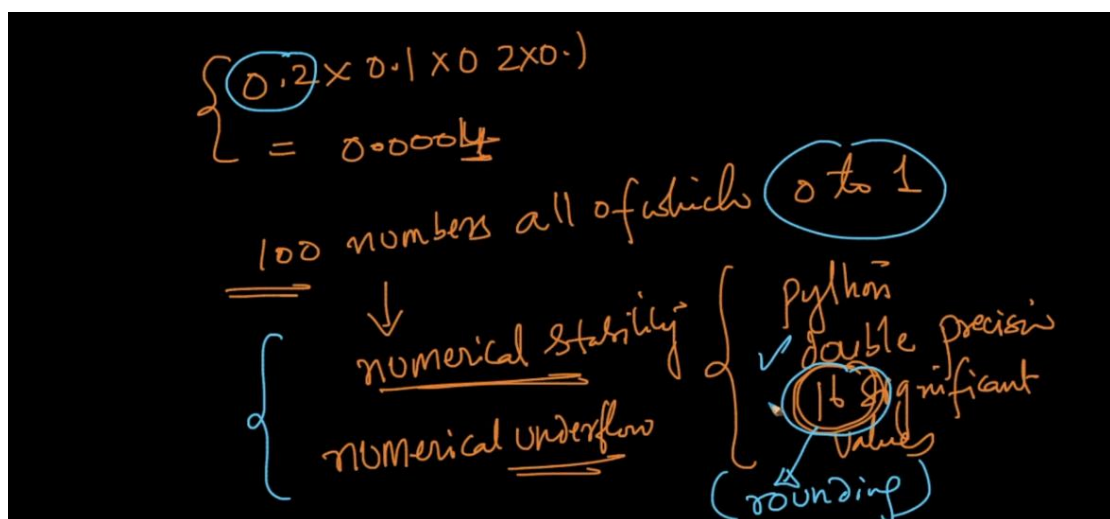 0.2 × 0.1 × 0 2 × 0.1
= 0.0004
100 numbers all of which 0 to 1
numerical stability
numerical underflow
Python
double precision
16 significant
values
(rounding)